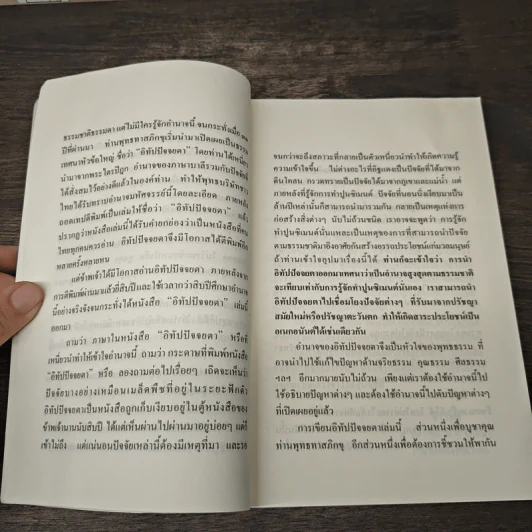 ธรรมชาติธรรมดา แต่ไม่มีใครรู้จักอำนาจนี้ จนกระทั่งเมื่อ
ปีที่ผ่านมา ท่านพุทธทาสภิกขุเริ่มนำมาเปิดเผยเป็นธรรม
เทศนาหัวข้อใหญ่ ชื่อว่า “อิทัปปัจจยตา” โดยท่านได้เหนี่ยว
นำมาจากพระไตรปิฎก อำนาจของภาษาบาลีรวมกับปัจจัยที่
ได้สั่งสมไว้อย่างดีแล้วในองค์ท่าน ทำให้พุทธบริษัทชาว
ไทยได้รับทราบอำนาจมหัศจรรย์นี้โดยละเอียด ภายหลัง
ถอดเทปตีพิมพ์เป็นเล่มให้ชื่อว่า “อิทัปปัจจยตา” แล้ว
ปรากฏว่าหนังสือเล่มนี้ได้รับคำยกย่องว่าเป็นหนังสือที่คน
ไทยทุกคนควรอ่าน อิทัปปัจจยตาจึงมีโอกาสได้ตีพิมพ์อีก
หลายครั้งหลายหน
แต่ข้าพเจ้าได้มีโอกาสอ่านอิทัปปัจจยตา ภายหลังจาก
การตีพิมพ์ผ่านมาแล้วสี่สิบปี และใช้เวลากว่าสิบปีศึกษาอำนาจ
นี้อย่างจริงจังจนกระทั่งได้หนังสือ “อิทัปปัจจยตา” เล่มนี้
ออกมา
ถามว่า ภาษาในหนังสือ “อิทัปปัจจยตา” หรืออะไร
เหนี่ยวนำทำให้เข้าใจอำนาจนี้ ถามว่า กระดาษที่พิมพ์หนังสือ
“อิทัปปัจจยตา” หรือ ลองถามต่อไปเรื่อยๆ เถิดจะเห็นว่า
ปัจจัยบางอย่างเหมือนเมล็ดพืชที่อยู่ในระยะฟักตัว
อิทัปปัจจยตาเป็นหนังสือถูกเก็บเงียบอยู่ในตู้หนังสือของ
ข้าพเจ้านานนับสิบปี ได้แต่เห็นผ่านไปผ่านมาอยู่บ่อยๆ แต่ก็
เข้าไม่ถึง แต่แน่นอนปัจจัยเหล่านี้ต้องมีเหตุที่มา และรอ
จนกว่าจะถึงสภาวะที่กลายเป็นตัวเหนี่ยวนำทำให้เกิดความรู้
ความเข้าใจขึ้น ไม่ต่างอะไรที่อิฐแดงเป็นปัจจัยที่ได้มาจาก
ดินโคลน กรวดทรายเป็นปัจจัยได้มาจากภูเขาและแม่น้ำ แต่
ภายหลังที่รู้จักการทำปูนซิเมนต์ ปัจจัยที่นอนนิ่งเงียบมาเป็น
ล้านปีเหล่านั้นก็สามารถนำมาเชื่อมโยงกัน กลายเป็นเหตุแห่งการ
ก่อสร้างสิ่งต่างๆ นับไม่ถ้วนชนิด เราอาจจะพูดว่า การรู้จัก
ทำปูนซิเมนต์นั่นแหละเป็นเหตุของการที่สามารถนำปัจจัย
ตามธรรมชาติมาอิงอาศัยกันสร้างอรรถประโยชน์แก่มวลมนุษย์
ถ้าท่านเข้าใจอุปมาเรื่องนี้ได้ ท่านก็จะเข้าใจว่า การนำ
อิทัปปัจจยตาออกมาเทศนาว่าเป็นอำนาจสูงสุดตามธรรมชาติ
จะเทียบเท่ากับการรู้จักทำปูนซิเมนต์นั่นเอง เราสามารถนำ
อิทัปปัจจยตาไปเชื่อมโยงปัจจัยต่างๆ ที่รับมาจากปรัชญา
สมัยใหม่หรือปรัชญาตะวันตก ทำให้เกิดสาระประโยชน์เป็น
อเนกอนันต์ได้เช่นเดียวกัน
อำนาจของอิทัปปัจจยตาจึงเป็นหัวใจของพุทธธรรม ที่
อาจนำไปใช้แก้ไขปัญหาด้านจริยธรรม คุณธรรม ศีลธรรม
ฯลฯ อีกมากมายนับไม่ถ้วน เพียงแต่เราต้องใช้อำนาจนี้ไป
ใช้อธิบายปัญหาต่างๆ และต้องใช้อำนาจนี้ไปดับปัญหาต่างๆ
ที่เปิดเผยอยู่แล้ว
การเขียนอิทัปปัจจยตาเล่มนี้ ส่วนหนึ่งเพื่อบูชาคุณ
ท่านพุทธทาสภิกขุ อีกส่วนหนึ่งเพื่อต้องการชี้ชวนให้พากัน